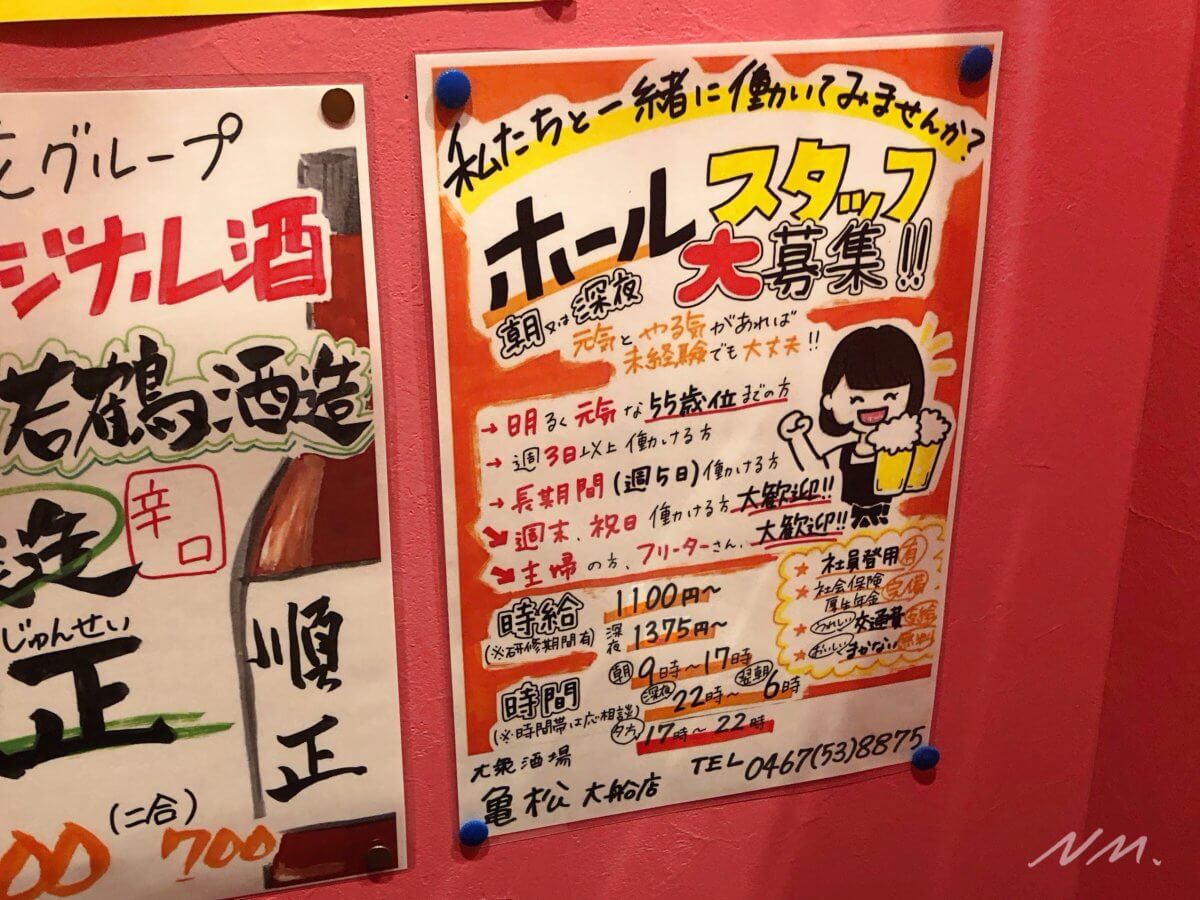 グループ
ジナル酒
若鶴酒造
辛口
じゅんせい
正
順正
(二合)
700
私たちと一緒に働いてみませんか?
ホールスタッフ
大募集!!
朝又は深夜
元気とやる気があれば
未経験でも大丈夫!!
→明るく元気な55歳位までの方
→週3日以上働ける方
→長期間(週5日)働ける方
→週末、祝日働ける方大歓迎!!
→主婦の方、フリーターさん、大歓迎!!
★社員登用有
★社会保険
厚生年金完備
★うれしい交通費支給
★おいしいまかない無料
時給
(※研修期間有)
1100円〜
深夜1375円〜
時間
(※時間帯は応相談)
朝9時〜17時
深夜22時〜翌朝6時
夕方17時〜22時
大衆酒場
亀松大船店
TEL 0467(53)8875
NM.